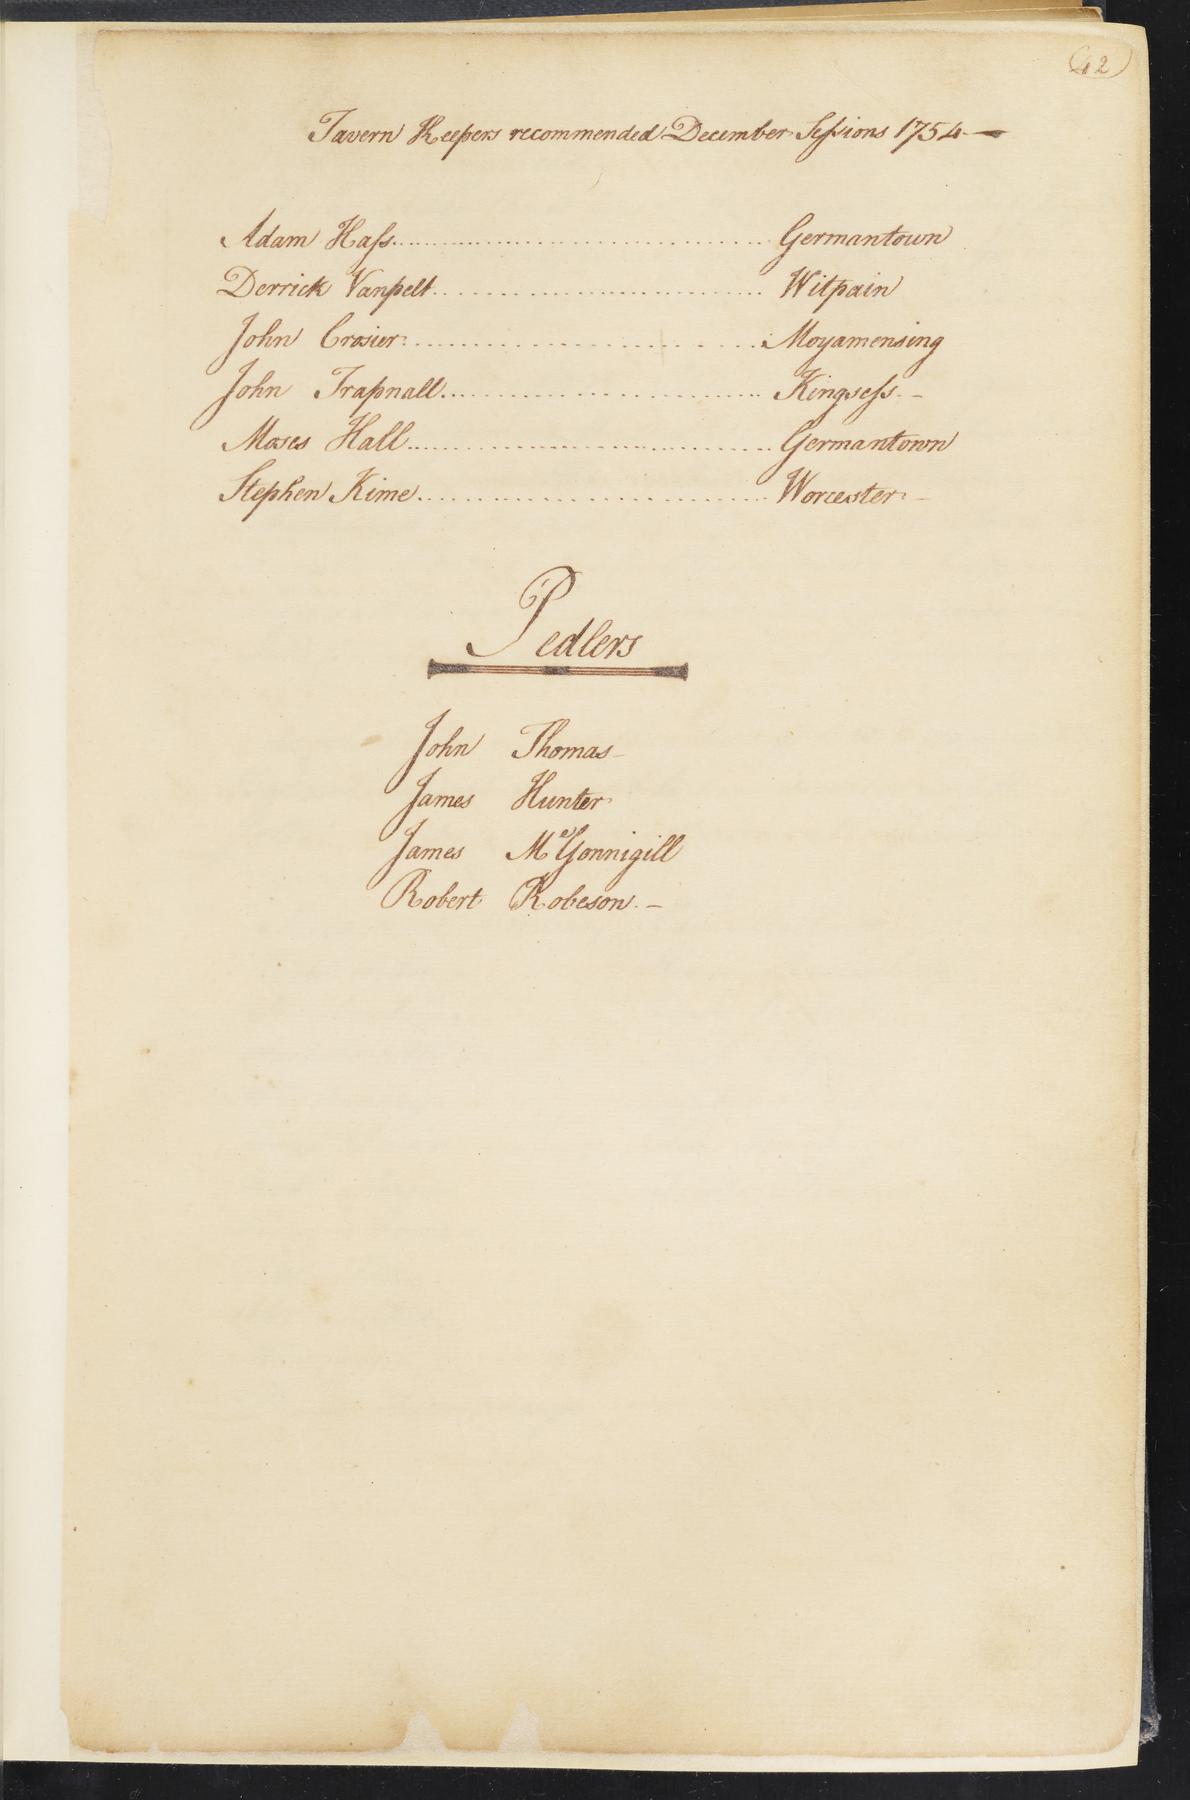 42
Tavern Keepers recommended December Sessions 1754 —
Adam Hass.................................... Germantown
Derrick Vanpelt.............................. Witpain
John Crosier................................. Moyamensing
John Trapnall................................ Kingsess. –
Moses Hall................................... Germantown
Stephen Kime................................. Worcester. –
Pedlers
John Thomas –
James Hunter
James McGonnigill
Robert Robeson. –